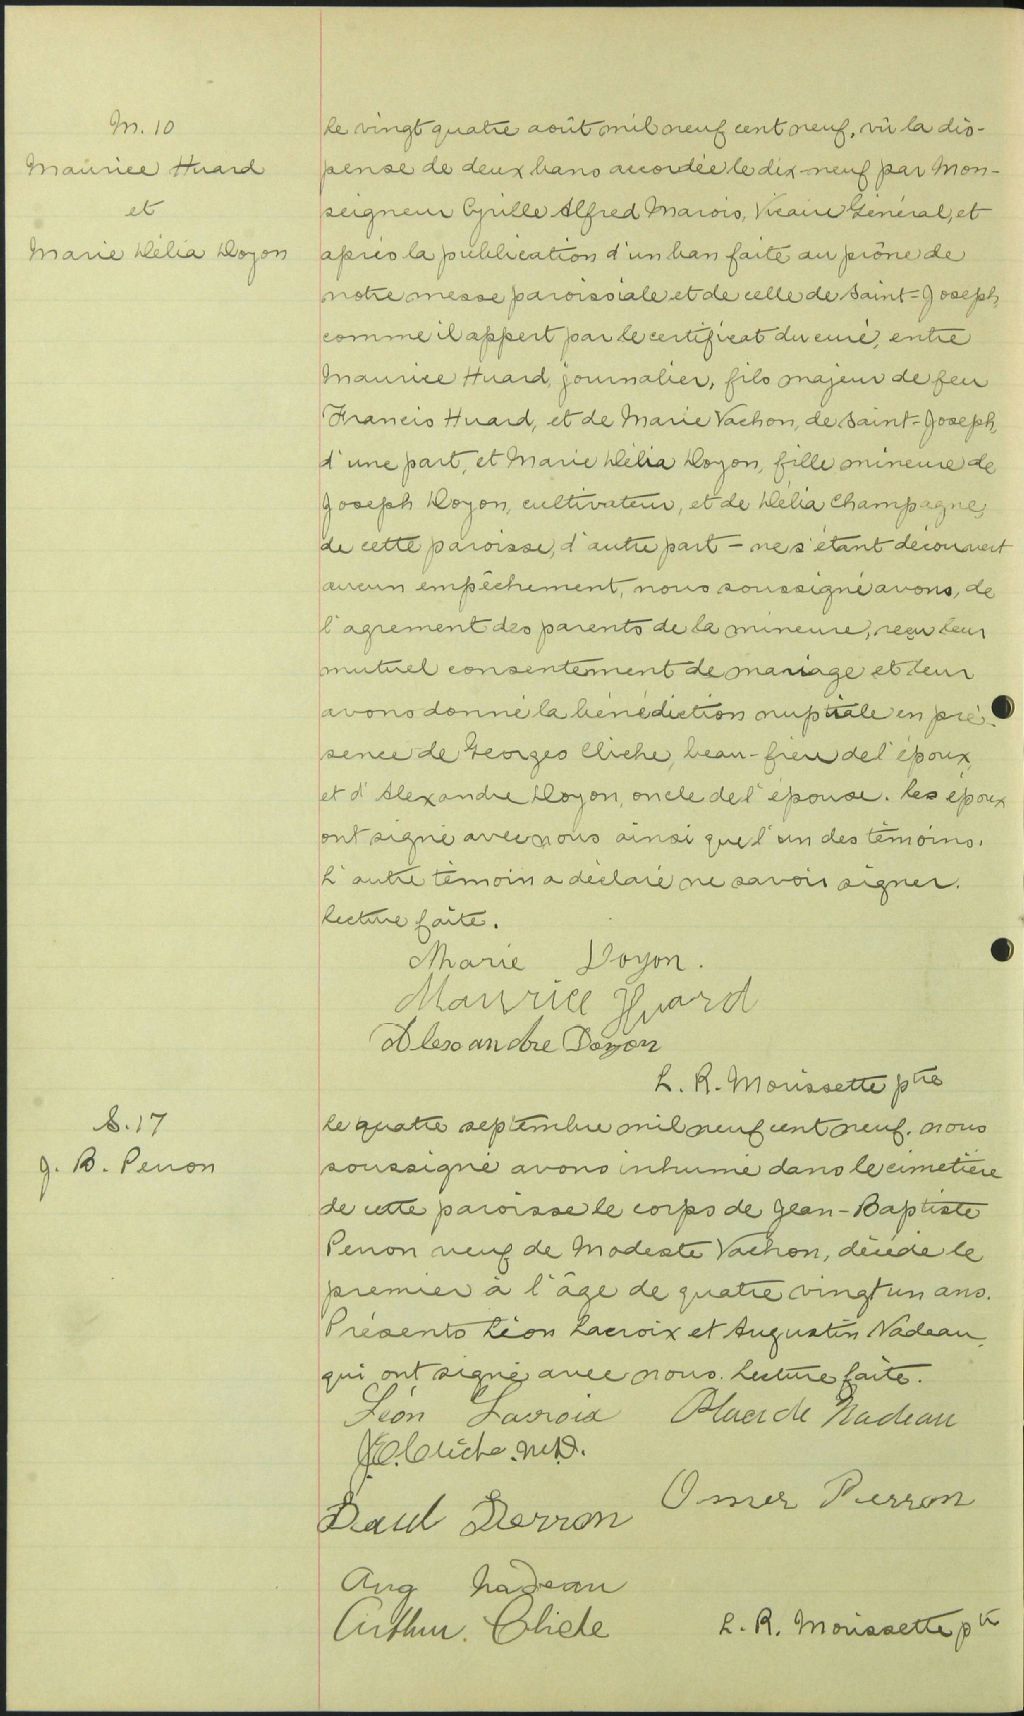 M. 10
Maurice Huard
et
Marie Délia Doyon
Le vingt quatre août mil neuf cent neuf, vû la dis-
pense de deux bans accordée le dix-neuf par Mon-
seigneur Cyrille Alfred Marois, Vicaire Général, et
après la publication d'un ban faite au prône de
notre messe paroissiale et de celle de Saint-Joseph,
comme il appert par le certificat du curé, entre
Maurice Huard, journalier, fils majeur de feu
Francis Huard, et de Marie Vachon, de Saint-Joseph,
d'une part, et Marie Délia Doyon, fille mineure de
Joseph Doyon, cultivateur, et de Délia Champagne,
de cette paroisse, d'autre part – ne s'étant découvert
aucun empêchement, nous soussigné avons, de
l'agrement des parents de la mineure, reçu leur
mutuel consentement de mariage et leur
avons donné la bénédiction nuptiale en pré-
sence de Georges Cliche, beau-frère de l'époux,
et d'Alexandre Doyon, oncle de l'épouse. Les époux
ont signé avec nous ainsi que l'un des témoins.
L'autre témoin a déclaré ne savoir signer.
Lecture faite.
Marie Doyon.
Maurice Huard
Alexandre Doyon
L. R. Morissette ptre
S. 17
J. B. Perron
Le quatre septembre mil neuf cent neuf, nous
soussigné avons inhumé dans le cimetière
de cette paroisse le corps de Jean-Baptiste
Perron veuf de Modeste Vachon, décédé le
premier à l'âge de quatre vingt un ans.
Présents Léon Lacroix et Augustin Nadeau,
qui ont signé avec nous. Lecture faite.
Léon Lacroix Placide Nadeau
Cliche. M.D.
Paul Perron Omer Perron
Aug Nadeau
Arthur. Cliche L. R. Morissette ptr